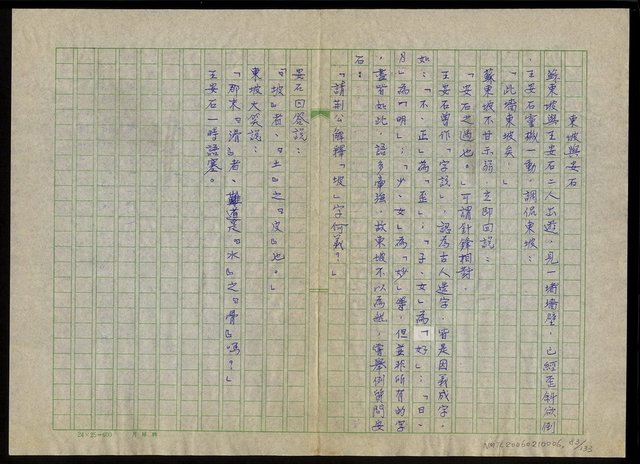 東坡與安石
蘇東坡與王安石二人出遊，見一堵牆壁，已經歪斜欲倒
，王安石靈機一動，調侃東坡：
「此牆東坡矣。」
蘇東坡不甘示弱，立即回說：
「安石之過也。」可謂針鋒相對。
王安石曾作「字說」，認為古人造字，皆是因義成字，
如：「不、正」為「歪」；「子、女」為「好」；「日、
月」為「明」；「少、女」為「妙」等，但並非所有的字
，盡皆如此，語多牽強，故東坡不以為然，嘗舉例質問安
石：
「請荊公解釋「坡」字何義？」
安石回答說：
「『坡』者，『土』之『皮』也。」
東坡大笑說：
「那末『滑』者，難道是『水』之『骨』嗎？」
王安石一時語塞。
24×25=600
NMTL20060210006
83/133